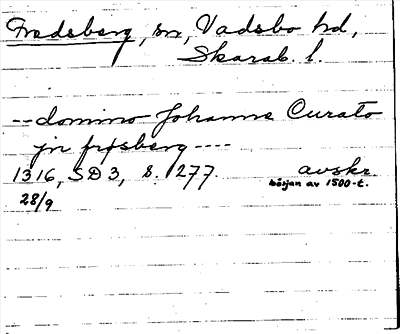 Fredsberg, sn, Vadsbo hd,
Skarab. l.
-- domino Johanne Curato
jn frøsberg ----
1316, SD 3, s. 277. avskr
28/9 början av 1500-t.